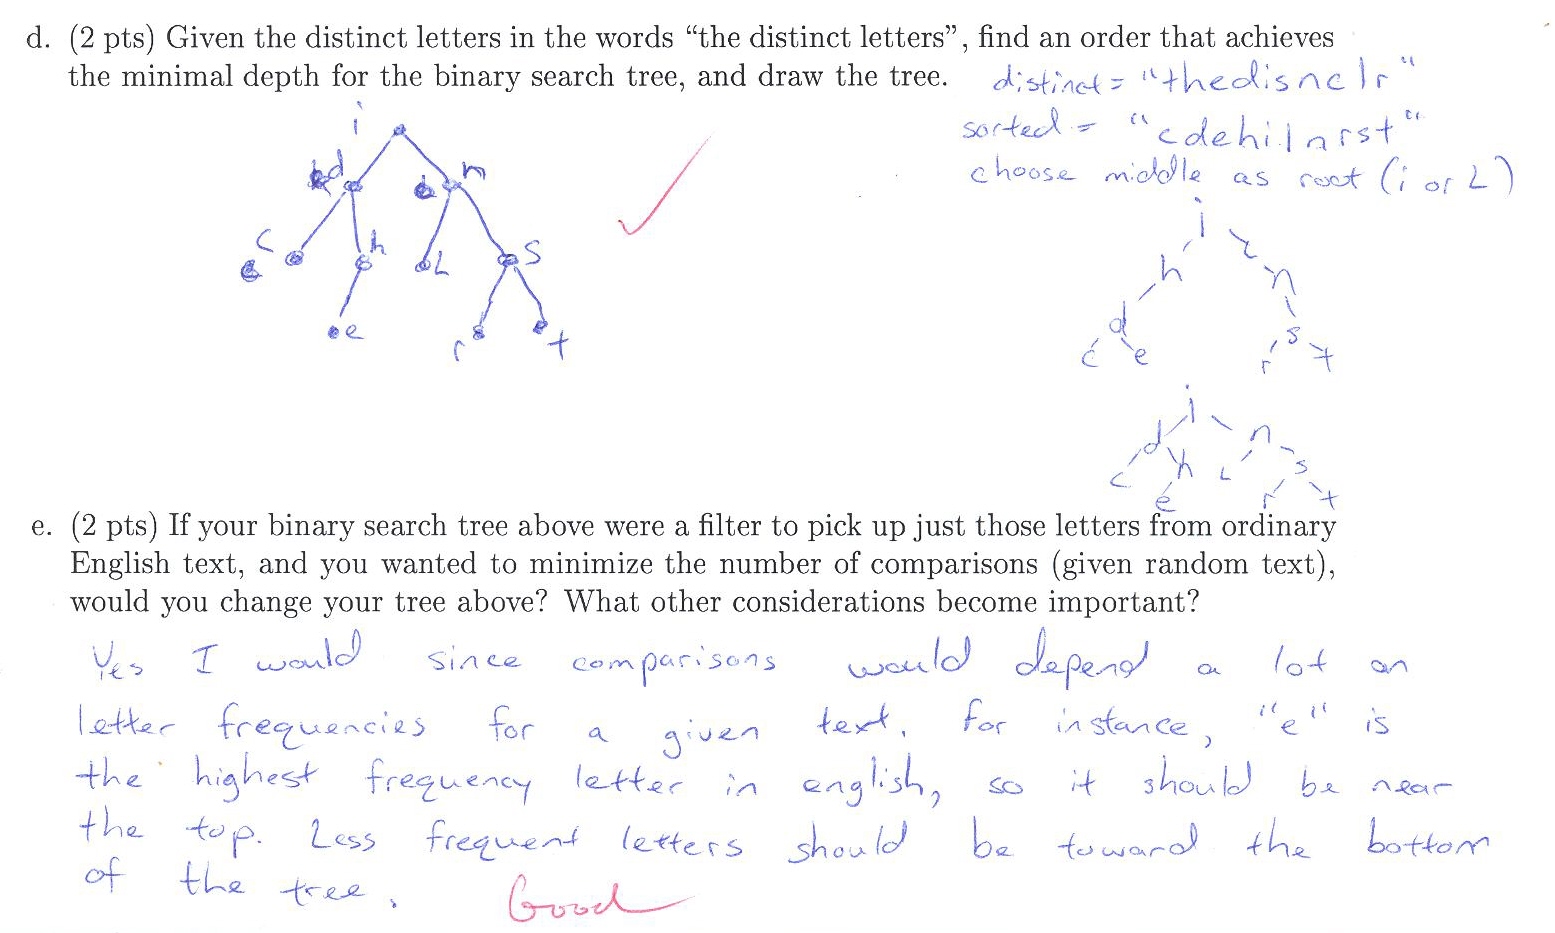 d. (2 pts) Given the distinct letters in the words “the distinct letters”, find an order that achieves
the minimal depth for the binary search tree, and draw the tree.
distinct = "thedisnclr"
sorted = "cdehilnrst"
choose middle as root (i or L)
i
d n
c h L s
e r t
i
h n
d s
c e r t
i
d n
c h L s
e r t
e. (2 pts) If your binary search tree above were a filter to pick up just those letters from ordinary
English text, and you wanted to minimize the number of comparisons (given random text),
would you change your tree above? What other considerations become important?
Yes I would since comparisons would depend a lot on
letter frequencies for a given text. For instance, "e" is
the highest frequency letter in english, so it should be near
the top. Less frequent letters should be toward the bottom
of the tree. Good